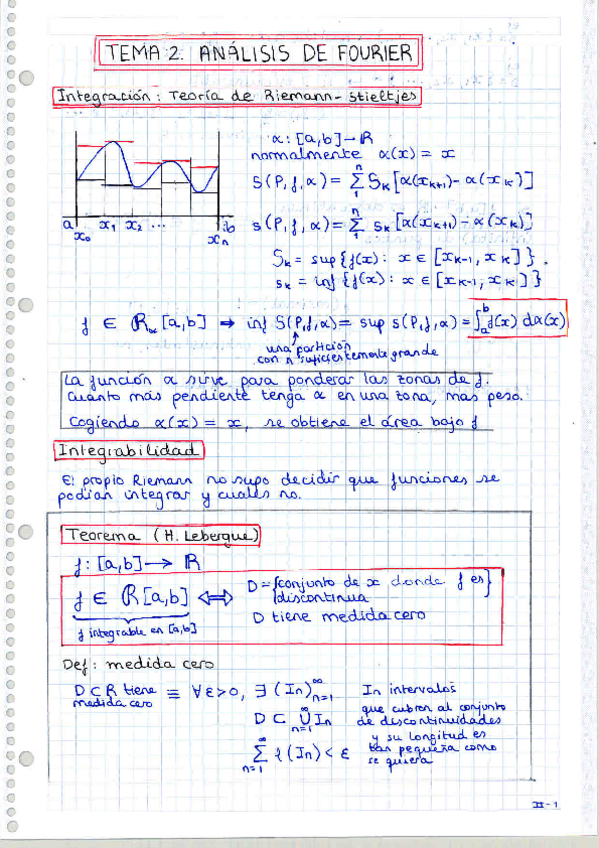 TEMA 2: ANÁLISIS DE FOURIER
Integración: Teoría de Riemann-Stieltjes
α: [a,b] → R
normalmente α(x) = x
S(P, f, α) = Σ₁ⁿ Sₖ [α(xₖ₊₁) - α(xₖ)]
s(P, f, α) = Σ₁ⁿ sₖ [α(xₖ₊₁) - α(xₖ)]
a x₀ x₁ x₂ ... xₙ b
Sₖ = sup {f(x): x ∈ [xₖ₋₁, xₖ]}.
sₖ = inf {f(x): x ∈ [xₖ₋₁, xₖ]}
f ∈ R_α [a,b] → inf S(P,f,α) = sup s(P,f,α) = ∫ₐᵇ f(x) dα(x)
una partición
con n suficientemente grande
La función α sirve para ponderar las zonas de f.
Cuanto más pendiente tenga α en una zona, mas peso.
Cogiendo α(x) = x, se obtiene el área bajo f
Integrabilidad
El propio Riemann no supo decidir que funciones se
podían integrar y cuales no.
Teorema (H. Lebergue)
f: [a,b] → R
f ∈ R[a,b] ⟺ D = {conjunto de x donde f es
discontinua}
f integrable en [a,b]
D tiene medida cero
Def: medida cero
D ⊂ R tiene
medida cero ≡ ∀ε>0, ∃ (In)ₙ₌₁^∞
D ⊂ ∪ₙ₌₁^∞ In
Σₙ₌₁^∞ ℓ(In) < ε
In intervalos
que cubren al conjunto
de discontinuidades
y su longitud es
tan pequeña como
se quiera
II-1